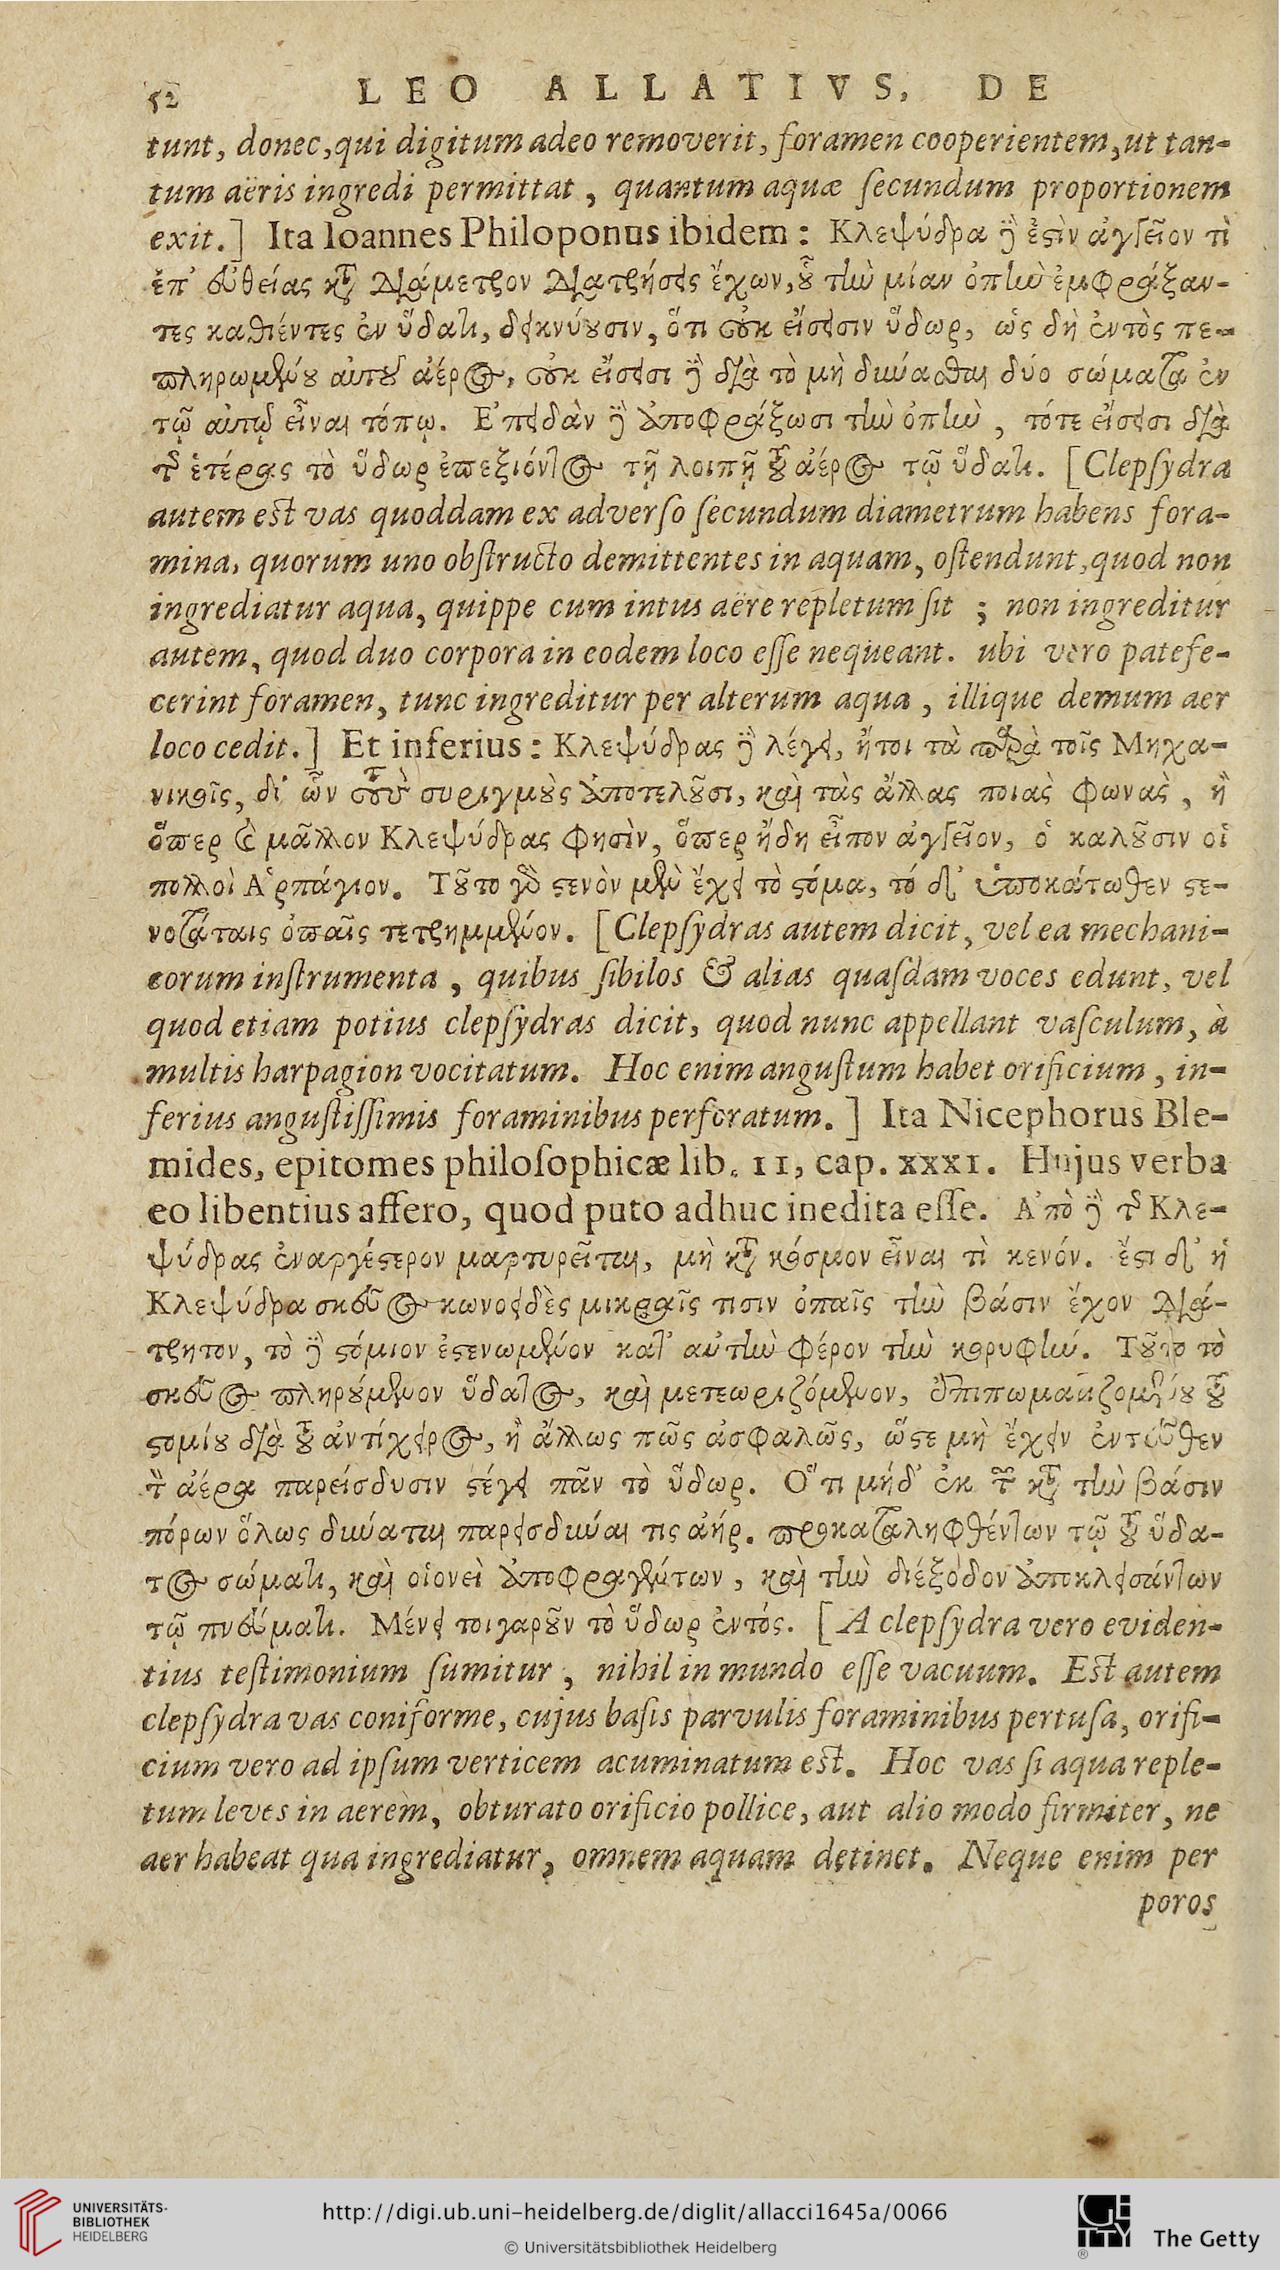 52 LEO ALLATIVS, DE
tunt, donec, qui digitum adeo removerit, foramen cooperientem, ut tan-
tum aëris ingredi permittat, quantum aquæ ſecundum proportionem
exit.] Ita Ioannes Philoponus ibidem: Κλεψύδρα ἢ ἐϛὶν ἀγγεῖον τὶ
ἐπ᾽ εὐθείας κτ̀ Διάμετρον Διατρήσεις ἔχων, ȣ̔͂ τίὼ μίαν ὀπίὼ ἐμφράξαν-
τες καθιέντες ἐν ὕδατι, δεικνύȣσιν, ὅτι ȣ̓κ εἴσεισιν ὕδωρ, ὡς δὴ ἐντὸς πε-
πληρωμένȣ αὐτȣ͂ ἀέρος, ȣ̓κ εἴσεισι δὲ διὰ τὸ μὴ δύναϑαι δύο σώματα ἐν
τῷ αὐτῷ εἶναι τόπῳ. Ε᾽πειδὰν δὲ ἀποφράξωσι τίὼ ὀπίὼ, τότε εἴσεισι διὰ
τῆς ἑτέρας τὸ ὕδωρ ἐπεξιόντος τῇ λοιπῇ τȣ͂ ἀέρος τῷ ὕδατι. [Clepſydra
autem est vas quoddam ex adverſo ſecundum diametrum habens fora-
mina, quorum uno obſtructo demittentes in aquam, oſtendunt, quod non
ingrediatur aqua, quippe cum intus aëre repletum ſit ; non ingreditur
autem, quod duo corpora in eodem loco eſſe nequeant. ubi vero patefe-
cerint foramen, tunc ingreditur per alterum aqua, illique demum aer
loco cedit.] Et inferius: Κλεψύδρας δὲ λέγει, ἤτοι τὰ παρὰ τοῖς Μηχα-
νικοῖς, δι᾽ ὧν τȣ̀ς συριγμȣ̀ς ἀποτελȣ͂σι, καὶ τὰς ἄλλας ποιὰς φωνὰς, ἢ
ὅπερ καὶ μᾶλλον Κλεψύδρας φησὶν, ὅπερ ἤδη εἶπον ἀγγεῖον, ὁ καλȣ͂σιν οἱ
πολλοὶ Α῾ρπάγιον. Τȣ͂το γὰρ ϛενὸν μὲν ἔχει τὸ ϛόμα, τό δ᾽ ὑποκάτωθεν ϛε-
νοτάταις ὀπαῖς τετρημμένον. [Clepſydras autem dicit, vel ea mechani-
corum inſtrumenta, quibus ſibilos & alias quaſdam voces edunt, vel
quod etiam potius clepſydras dicit, quod nunc appellant vaſculum, à
multis harpagion vocitatum. Hoc enim anguſtum habet orificium, in-
ferius anguſtiſſimis foraminibus perforatum.] Ita Nicephorus Ble-
mides, epitomes philoſophicæ lib. II, cap. XXXI. Hujus verba
eo libentius affero, quod puto adhuc inedita eſſe. Α᾽πὸ δὲ τῆς Κλε-
ψύδρας ἐναργέϛερον μαρτυρεῖται, μὴ κτ̀ κόσμον εἶναι τὶ κενόν. ἔϛι δ᾽ ἡ
Κλεψύδρα σκεῦος κωνοειδὲς μικραῖς τισιν ὀπαῖς τίὼ βάσιν ἔχον Διά-
τρητον, τὸ δὲ ϛόμιον ἐϛενωμένον κατ᾽ αὐτίὼ φέρον τίὼ κορυφίώ. Τȣ͂το τὸ
σκεῦος πληρȣ́μενον ὕδατος, καὶ μετεωριζόμενον, ἐπιπωματιζομένȣ τȣ͂
ϛομίȣ διὰ τȣ͂ ἀντίχειρος, ἢ ἄλλως πῶς ἀσφαλῶς, ὥϛε μὴ ἔχειν ἐντεῦθεν
τὸν ἀέρα παρείσδυσιν ϛέγει πᾶν τὸ ὕδωρ. Ο῞τι μήδ᾽ ἐκ τῶν κτ̀ τίὼ βάσιν
πόρων ὅλως δύναται παρεισδύναι τις ἀήρ. προκαταληφθέντων τῷ τȣ͂ ὕδα-
τος σώματι, καὶ οἱονεὶ ἀποφραγέντων, καὶ τίὼ διέξοδον ἀποκλεισάντων
τῷ πνεύματι. Μένει τοιγαρȣ͂ν τὸ ὕδωρ ἐντός. [A clepſydra vero eviden-
tius teſtimonium ſumitur, nihil in mundo eſſe vacuum. Est autem
clepſydra vas coniforme, cujus baſis parvulis foraminibus pertuſa, orifi-
cium vero ad ipſum verticem acuminatum est. Hoc vas ſi aqua reple-
tum leves in aerem, obturato orificio pollice, aut alio modo firmiter, ne
aer habeat qua ingrediatur, omnem aquam detinet. Neque enim per
poros
UNIVERSITÄTS-
BIBLIOTHEK
HEIDELBERG
http://digi.ub.uni-heidelberg.de/diglit/allacci1645a/0066
© Universitätsbibliothek Heidelberg
GETTY
® The Getty